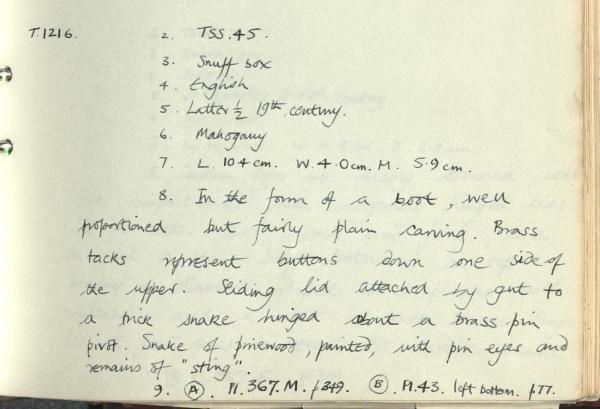 T.1216. 2. TSS.45.
3. Snuff box
4. English
5. Latter ½ 19th century.
6. Mahogany
7. L. 10.4cm. W. 4.0cm. M. 5.9cm.
8. In the form of a boot, well
proportioned but fairly plain carving. Brass
tacks represent buttons down one side of
the upper. Sliding lid attached by gut to
a trick snake hinged about a brass pin
pivot. Snake of pinewood, painted, with pin eyes and
remains of "sting".
9. (A). Pl. 367.M. p349. (B). Pl.43. left bottom. p77.